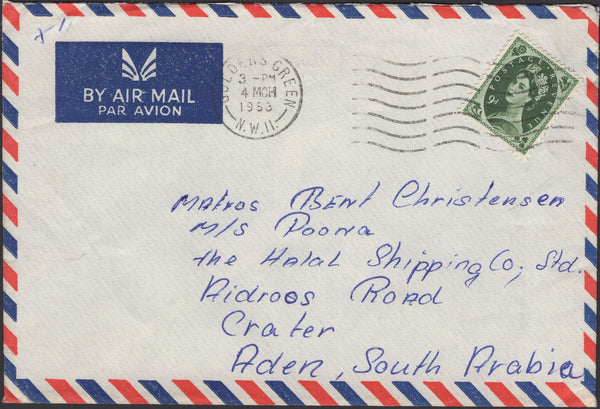 BY AIR MAIL
PAR AVION
GOLDERS GREEN
3 - PM
4 MCH
1963
N.W.11.
POSTAGE REVENUE
9D
Matros Bent Christensen
M/S Poona
the Halal Shipping Co; Std.
Aidroos Road
Crater
Aden, South Arabia